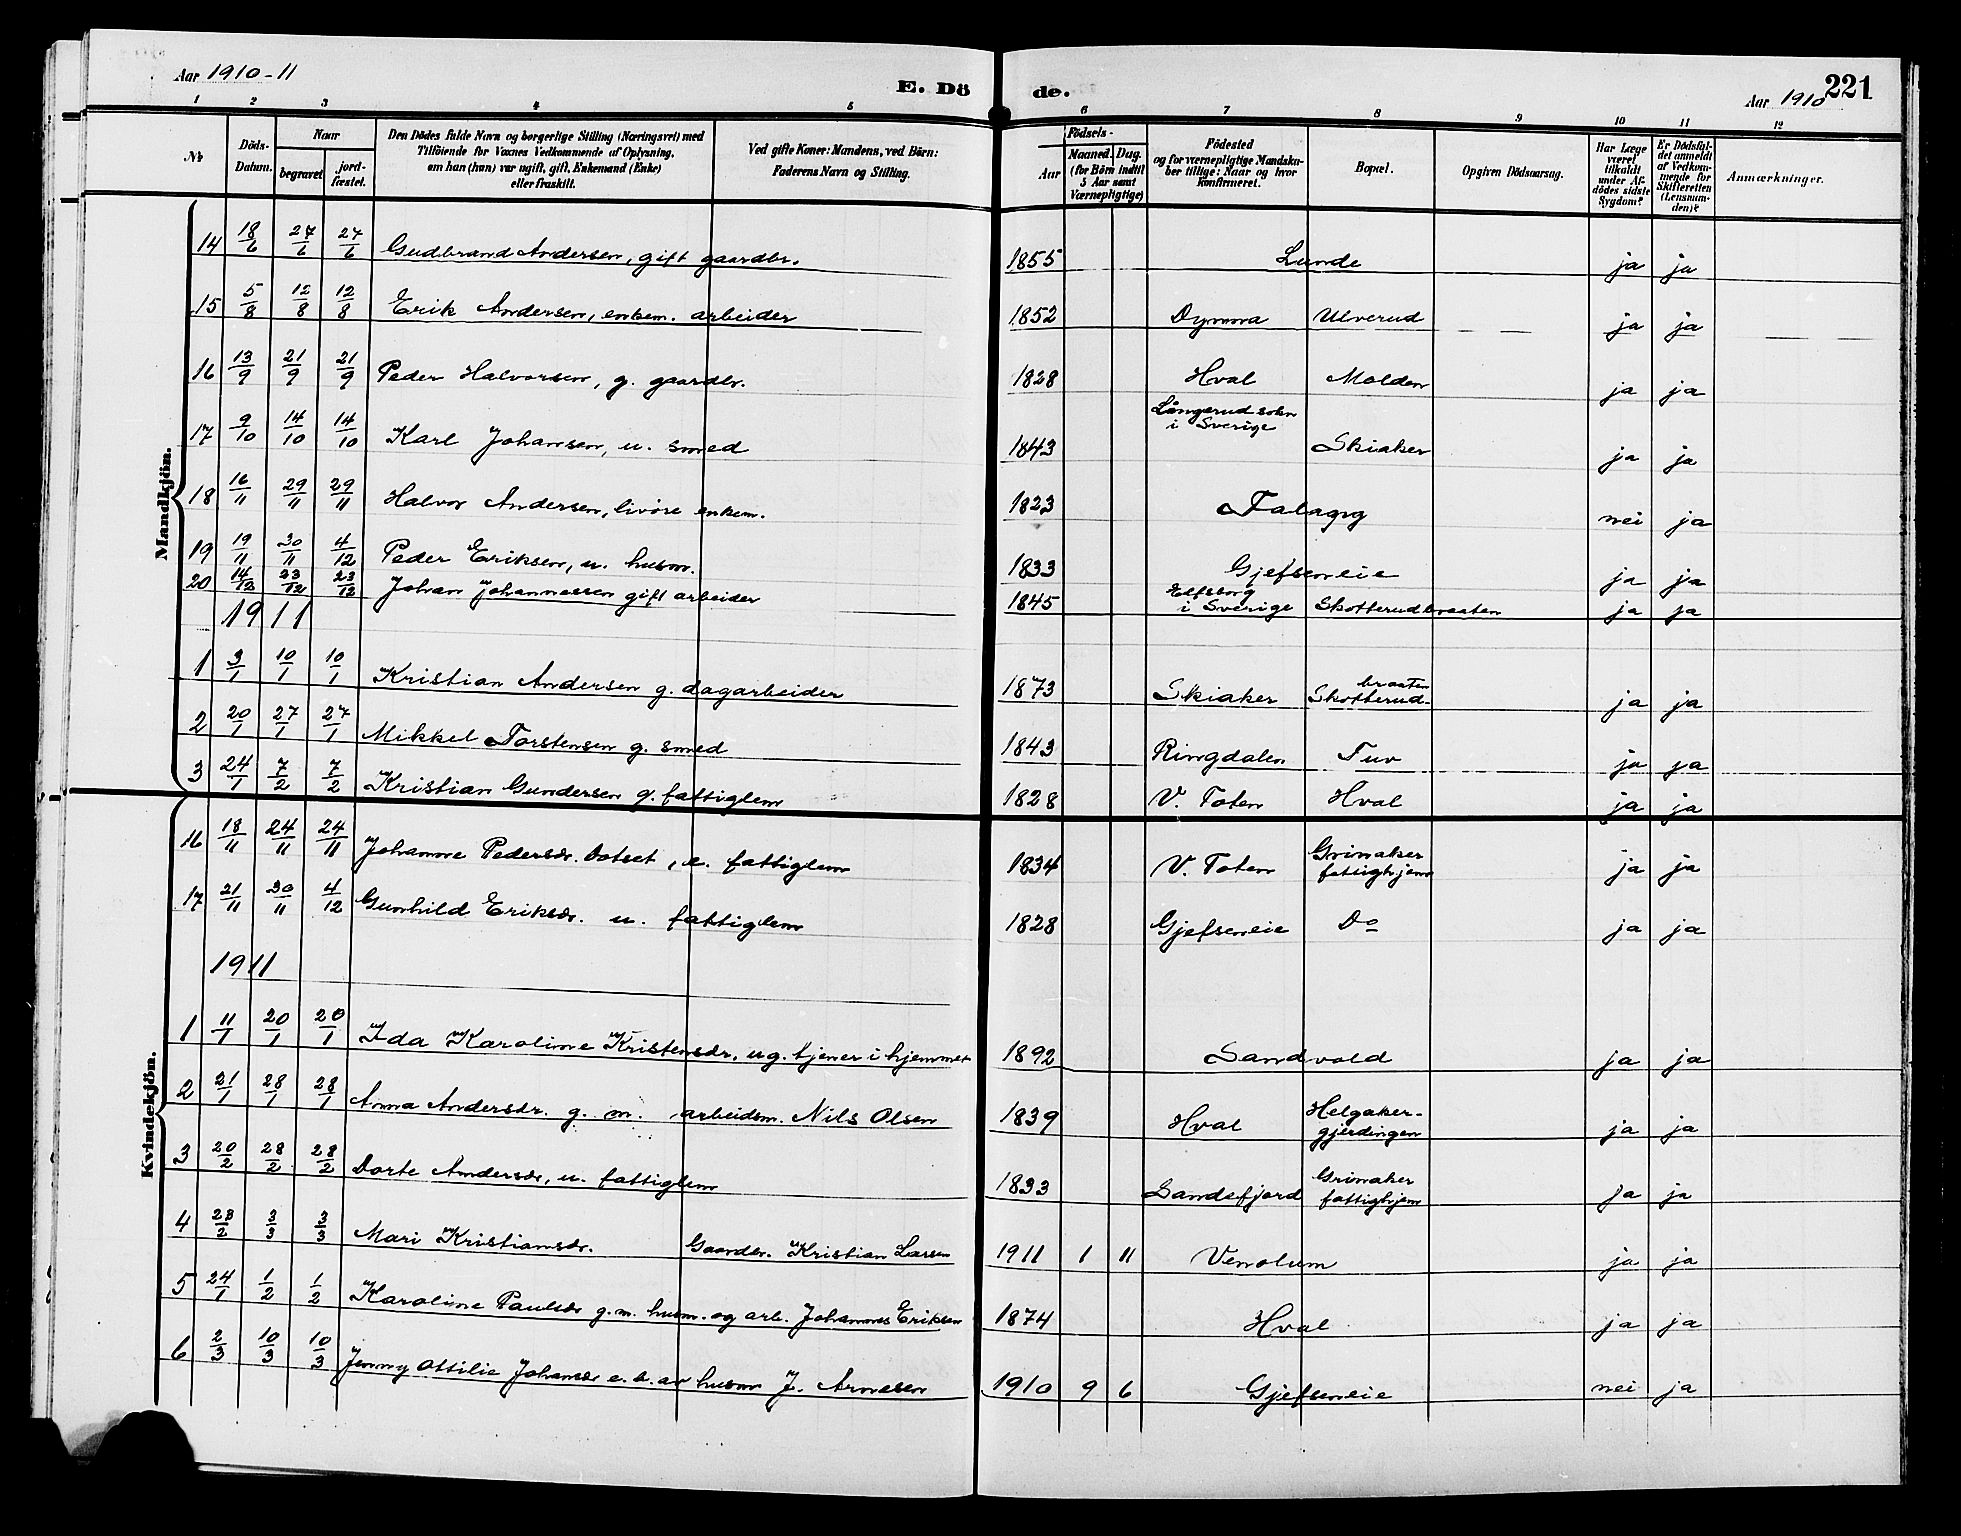 Aar 1910-11 E. Dö
de. Aar 1910 221
1 2 3 4 5
6 7 8 9 10 11 12
No
Döds-Datum.
Naar
begravet
jord-fæstet.
Den Dödes fulde Navn og borgerlige Stilling (Næringsvei) med
Tilföiende for Voxnes Vedkommende af Oplysning,
om han (hun) var ugift, gift, Enkemand (Enke)
eller fraskilt.
Ved gifte Koner: Mandens, ved Börn:
Faderens Navn og Stilling.
Födsels-
Aar
Maaned. Dag.
(for Börn indtil
5 Aar samt
Værnepligtige)
Födested
og for værnepligtige Mandska-
ber tillige: Naar og hvor
konfirmeret.
Bopæl.
Opgiven Dödsaarsag.
Har Læge
været
tilkaldt
under Af-
dödes sidste
Sygdom?
Er Dödsfal-
det anmeldt
af Vedkom-
mende for
Skifteretten
(Lensman-
den)?
Anmærkninger.
Mandkjön.
14 18/6 27/6 27/6 Gudbrand Andersen, gift gaardbr. 1855 Lunde ja ja
15 5/8 12/8 12/8 Erik Andersen, enkem. arbeider 1852 Dynna Ulverud ja ja
16 13/9 21/9 21/9 Peder Halvorsen, g. gaardbr. 1828 Hval Molden ja ja
17 9/10 14/10 14/10 Karl Johansen, u. smed 1843 Långerud sokn
i Sverige Skiaker ja ja
18 16/11 29/11 29/11 Halvor Andersen, livöre enkem. 1823 Falagg nei ja
19 19/11 30/11 4/12 Peder Eriksen, u. husm. 1833 Gjefseneie ja ja
20 14/12 23/12 23/12 Johan Johannessen gift arbeider 1845 Elfsborg
i Sverige Skotterudbraaten ja ja
1911
1 3/1 10/1 10/1 Kristian Andersen g. dagarbeider 1873 Skiaker Skotterud-
braaten ja ja
2 20/1 27/1 27/1 Mikkel Torstensen g. smed 1843 Ringdalen Tuv ja ja
3 24/1 7/2 7/2 Kristian Gundersen g. fattiglem 1828 V. Toten Hval ja ja
Kvindekjön.
16 18/11 24/11 24/11 Johanne Pedersdr. Dotset, e. fattiglem 1834 V. Toten Grinaker
fattighjem ja ja
17 21/11 30/11 4/12 Gunhild Eriksdr. u. fattiglem 1828 Gjefseneie Do ja ja
1911
1 11/1 20/1 20/1 Ida Karoline Kristensdr. ug. tjener i hjemmet 1892 Sandvold ja ja
2 21/1 28/1 28/1 Anna Andersdr. g. m. arbeidsm. Nils Olsen 1839 Hval Helgaker-
gjerdingen ja ja
3 20/2 28/2 28/2 Dorte Andersdr, u. fattiglem 1833 Sandefjord Grinaker
fattighjem ja ja
4 28/2 3/3 3/3 Mari Kristiansdr. Gaardbr. Kristian Larsen 1911 1 11 Venolum ja ja
5 24/1 1/2 1/2 Karoline Paulsdr g. m. husm. og arb. Johannes Eriksen 1874 Hval ja ja
6 2/3 10/3 10/3 Jenny Ottilie Johansdr e. b. av husm J. Arnesen 1910 9 6 Gjefseneie nei ja